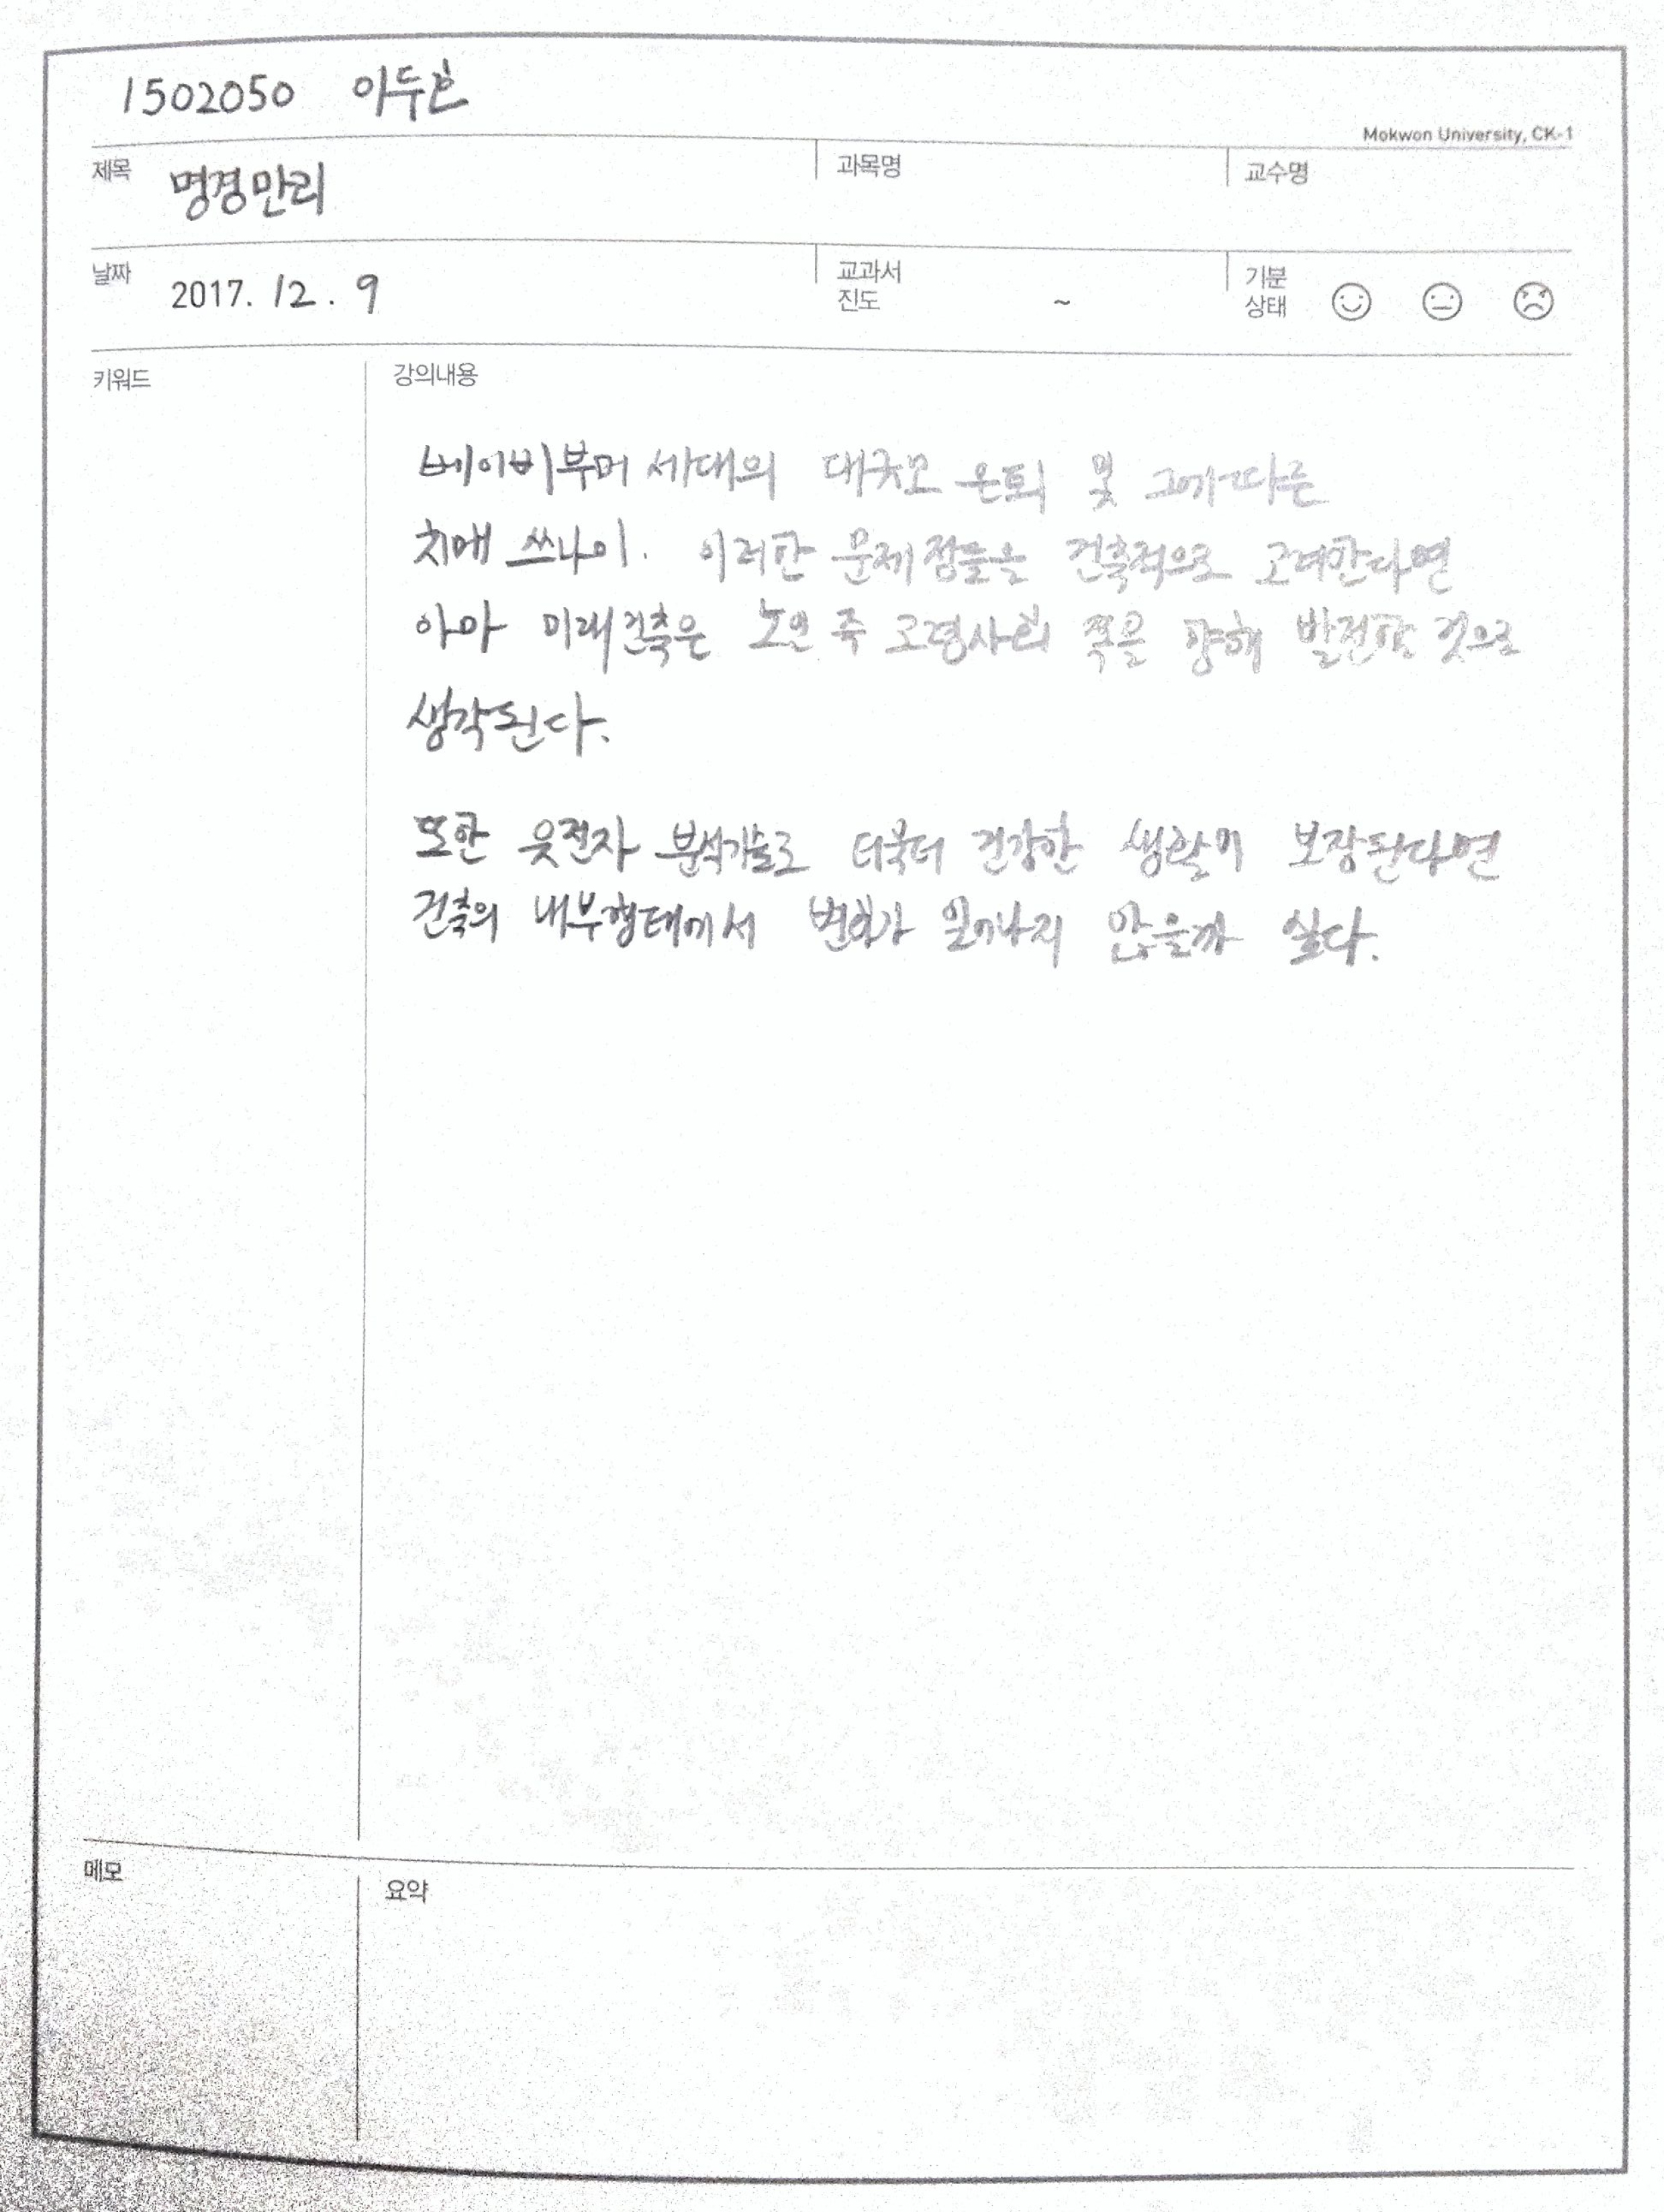 1502050 이두호
Mokwon University, CK-1
제목 명경만리 과목명 교수명
날짜 2017. 12. 9 교과서 진도 ~ 기분 상태
키워드 강의내용
베이비부머 세대의 대규모 은퇴 및 그에따른
치매 쓰나미. 이러한 문제점들을 건축적으로 고려한다면
아마 미래건축은 노인 즉 고령사회 쪽을 향해 발전할 것으로
생각된다.
또한 유전자 분석기술로 더욱더 건강한 생활이 보장된다면
건축의 내부형태에서 변화가 일어나지 않을까 싶다.
메모 요약